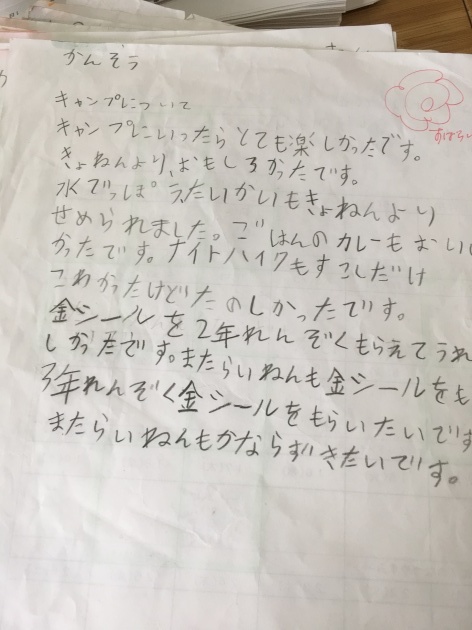 かんぞう
キャンプについて
キャンプにいったらとても楽しかったです。
きょねんより、おもしろかったです。
水でっぽうたいかいもきょねんより
せめられました。ごはんのカレーもおいし
かったです。ナイトハイクもすこしだけ
こわかったけどたのしかったです。
金シールを2年れんぞくもらえてうれ
しかったです。またらいねんも金シールをも
3年れんぞく金シールをもらいたいです
またらいねんもかならずきたいです。
すばらし